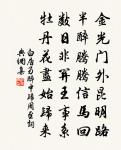 金光門外昆明路
半醉騰騰信馬回
數日非関王事系
牡丹花盡始歸來
白居易 醉中歸
典網集